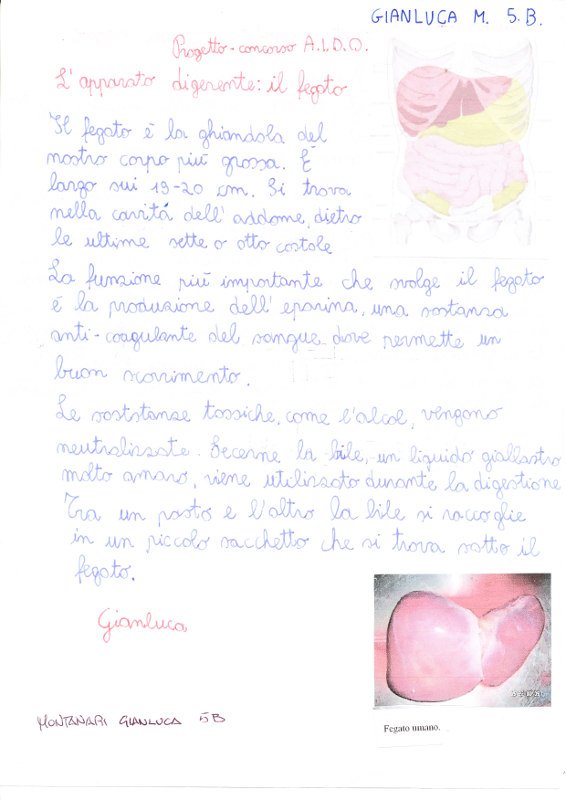 GIANLUCA M. 5.B.
Progetto-concorso A.I.D.O.
L'apparato digerente: il fegato
Il fegato é la ghiandola del
nostro corpo piú grossa. É
largo sui 19-20 cm. Si trova
nella cavitá dell'addome, dietro
le ultime sette o otto costole
La funzione piú importante che svolge il fegato
é la produzione dell'eparina, una sostanza
anti-coagulante del sangue dove permette un
buon scorrimento.
Le soststanze tossiche, come l'alcol, vengono
neutralizzate. Secerne la bile, un liquido giallastro
molto amaro, viene utilizzato durante la digestione
Tra un pasto e l'altro la bile si raccoglie
in un piccolo sacchetto che si trova sotto il
fegato.
Gianluca
MONTANARI GIANLUCA 5B
Fegato umano.